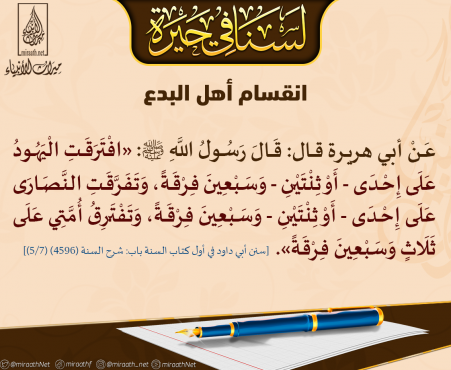 لسنا في حيرة
ميراث الأنبياء
miraath.Net
انقسام أهل البدع
عَنْ أبي هريرة قال: قَالَ رَسُولُ اللَّهِ ﷺ: «افْتَرَقَتِ الْيَهُودُ
عَلَى إِحْدَى - أَوْ ثِنْتَيْنِ - وَسَبْعِينَ فِرْقَةً، وَتَفَرَّقَتِ النَّصَارَى
عَلَى إِحْدَى - أَوْ ثِنْتَيْنِ - وَسَبْعِينَ فِرْقَةً، وَتَفْتَرِقُ أُمَّتِي عَلَى
ثَلَاثٍ وَسَبْعِينَ فِرْقَةً». [سنن أبي داود في أول كتاب السنة باب: شرح السنة (4596) (5/7)]
@miraathNet miraathf @miraath_net miraathNet